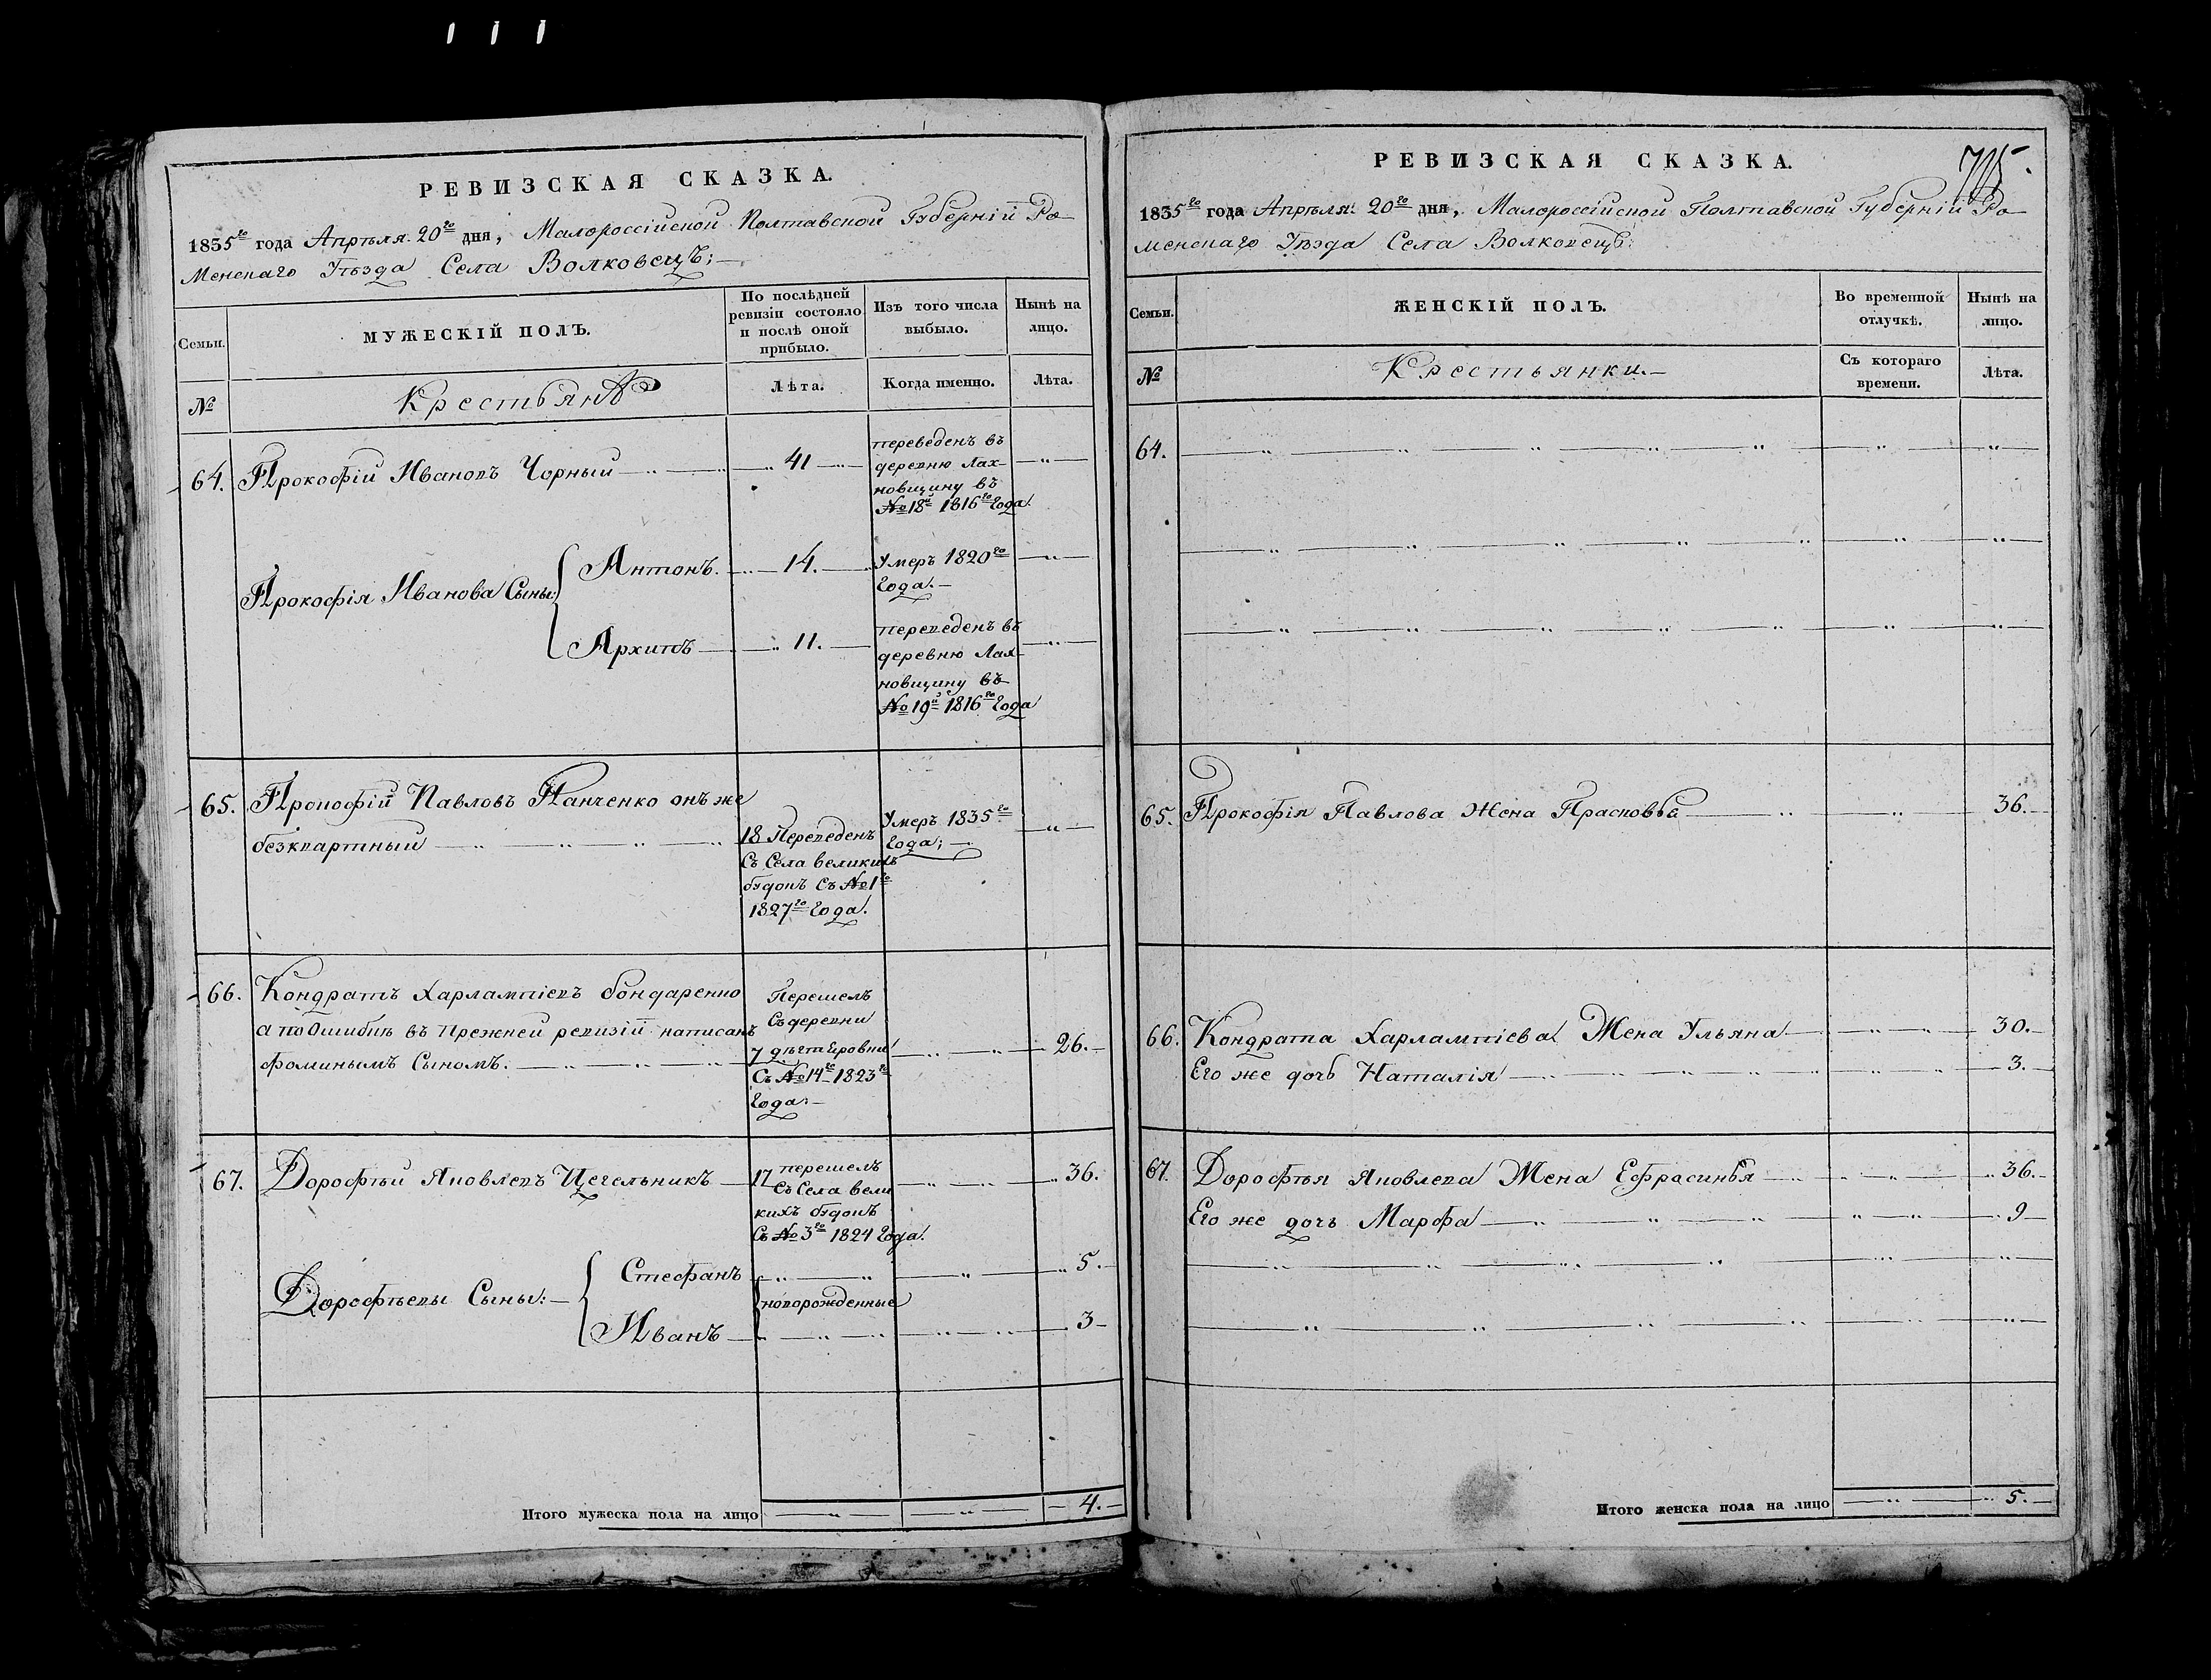 РЕВИЗСКАЯ СКАЗКА.
1835го года Апрѣля 20го дня, Малороссійской Полтавской Губерніи Ро
менскаго Уѣзда Села Волковецъ;
Семьи.
МУЖЕСКІЙ ПОЛЪ.
По послѣдней
ревизіи состояло
и послѣ оной
прибыло.
Изъ того числа
выбыло.
Нынѣ на
лицо.
№
Крестьянъ
Лѣта.
Когда именно.
Лѣта.
64. Прокофій Ивановъ Чорный 41
переведенъ въ
деревню Лах-
новщину въ
№18й 1816го Года.
Прокофія Иванова Сыны:
Антонъ. 14. Умеръ 1820го
Года.
Архипъ 11. переведенъ въ
деревню Лах-
новщину въ
№19й 1816го Года
65. Прокофій Павловъ Панченко онъ же
безквартный
18 Переведенъ
Съ Села великихъ
будокъ Съ №1го
1827го Года.
Умеръ 1835го
Года;
66. Кондратъ Харлампіевъ бондаренко
а по Ошибкѣ въ прежней ревизіи написанъ
фоминымъ Сыномъ.
Перешелъ
Съ деревни
7
Съ №14го 1823го
Года.
26.
67. Дорофѣй Яковлевъ Цегельникъ
17 перешелъ
Съ Села вели
кихъ будокъ
Съ №3го 1824 Года.
36.
Дорофѣевы Сыны:
Стефанъ 5.
новорожденные
Иванъ 3
Итого мужеска пола на лицо 4.
РЕВИЗСКАЯ СКАЗКА.
1835го года Апрѣля 20го дня, Малороссійской Полтавской Губерніи Ро
менскаго Уѣзда Села Волковецъ:
Семьи.
ЖЕНСКІЙ ПОЛЪ.
Во временной
отлучкѣ.
Нынѣ на
лицо.
№
Крестьянки.
Съ котораго
времени.
Лѣта.
64.
65. Прокофія Павлова Жена Прасковья 36.
66. Кондрата Харлампіева Жена Ульяна 30.
Его же дочь Наталія 3.
67. Дорофѣя Яковлева Жена Ефрасинья 36.
Его же дочь Марфа 9
Итого женска пола на лицо 5.